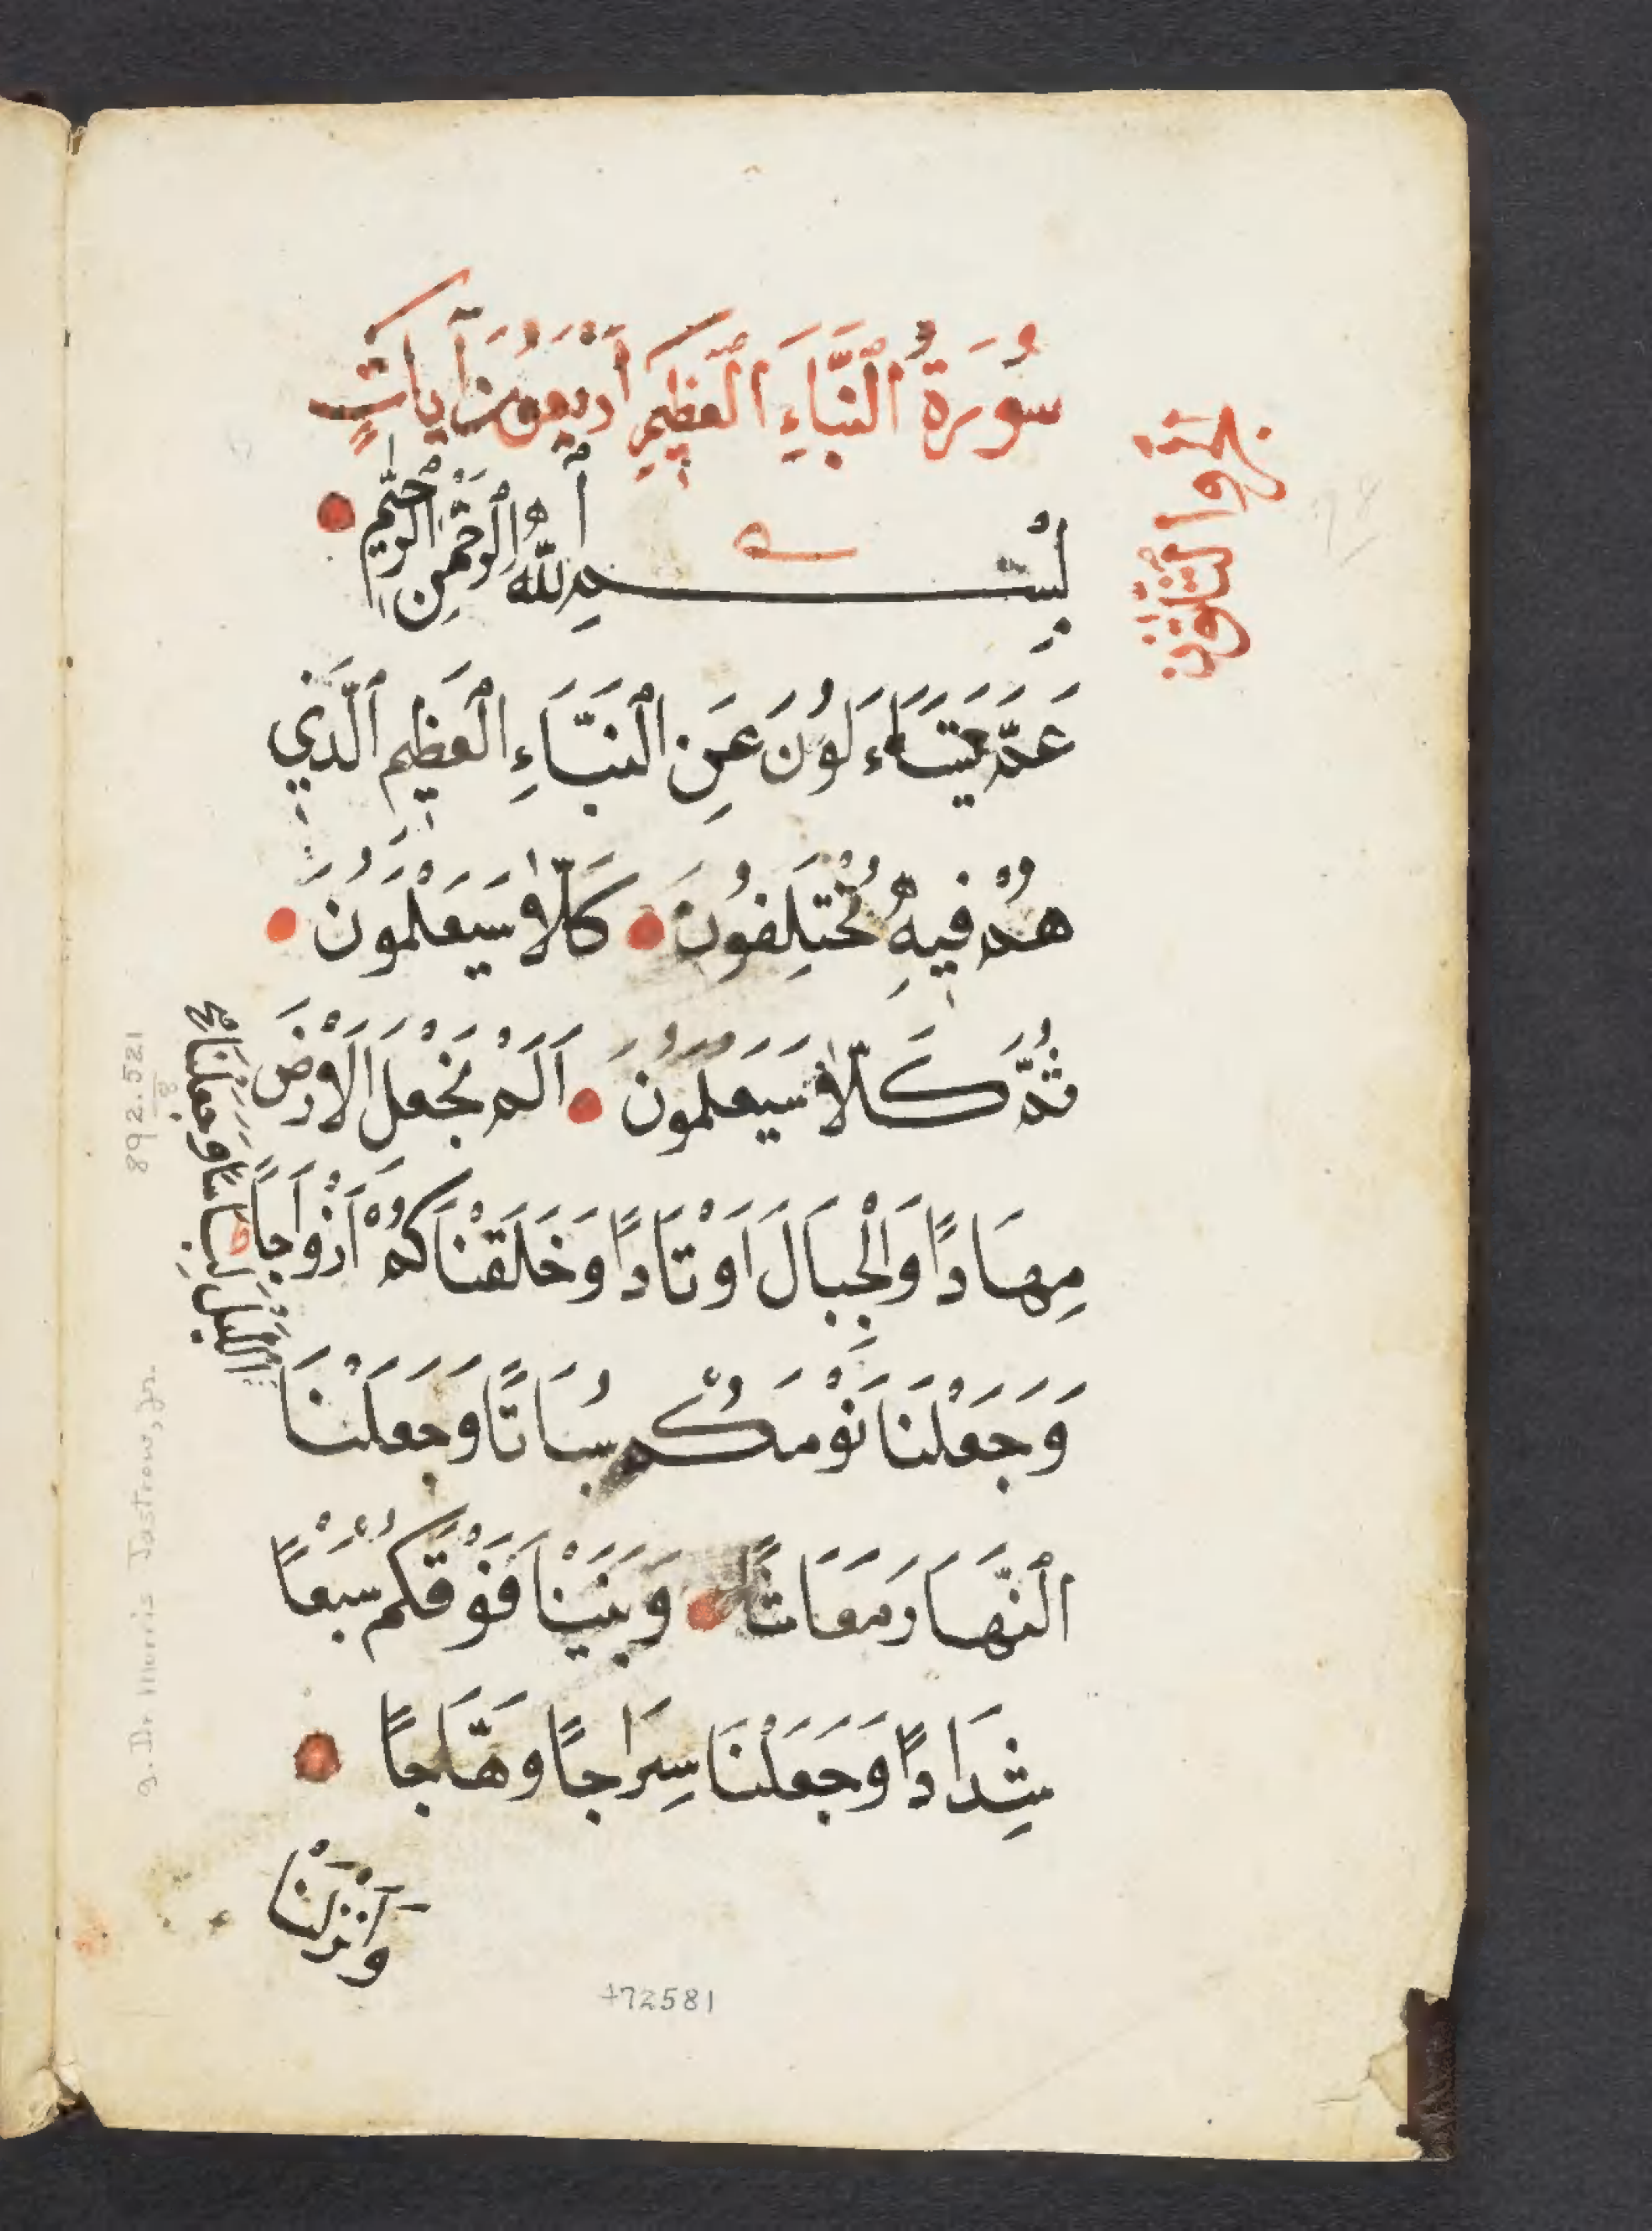 سُورَةُ ٱلنَّبَاءِ ٱلْعَظِيمِ أَرْبَعُونَ آيَاتٍ
بِسْــــمِ ٱللَّهِ ٱلرَّحْمٰنِ ٱلرَّحِيمِ
عَمَّ يَتَسَاءَلُونَ عَنِ ٱلنَّبَاءِ ٱلْعَظِيمِ ٱلَّذِي
هُمْ فِيهِ مُخْتَلِفُونَ كَلَّا سَيَعْلَمُونَ
ثُمَّ كَلَّا سَيَعْلَمُونَ اَلَمْ نَجْعَلِ الْاَرْضَ
مِهَادًا وَالْجِبَالَ اَوْتَادًا وَخَلَقْنَاكُمْ اَزْوَاجًا
وَجَعَلْنَا نَوْمَكُمْ سُبَاتًا وَجَعَلْنَا
الليل لباسا وجعلنا
ٱلنَّهَارَ مَعَاشًا وَبَنَيْنَا فَوْقَكُمْ سَبْعًا
شِدَادًا وَجَعَلْنَا سِرَاجًا وَهَّاجًا
وَاَنْزَلْنَا
892.521
8
g. Dr. Morris Jastrow, Jr.
+72581